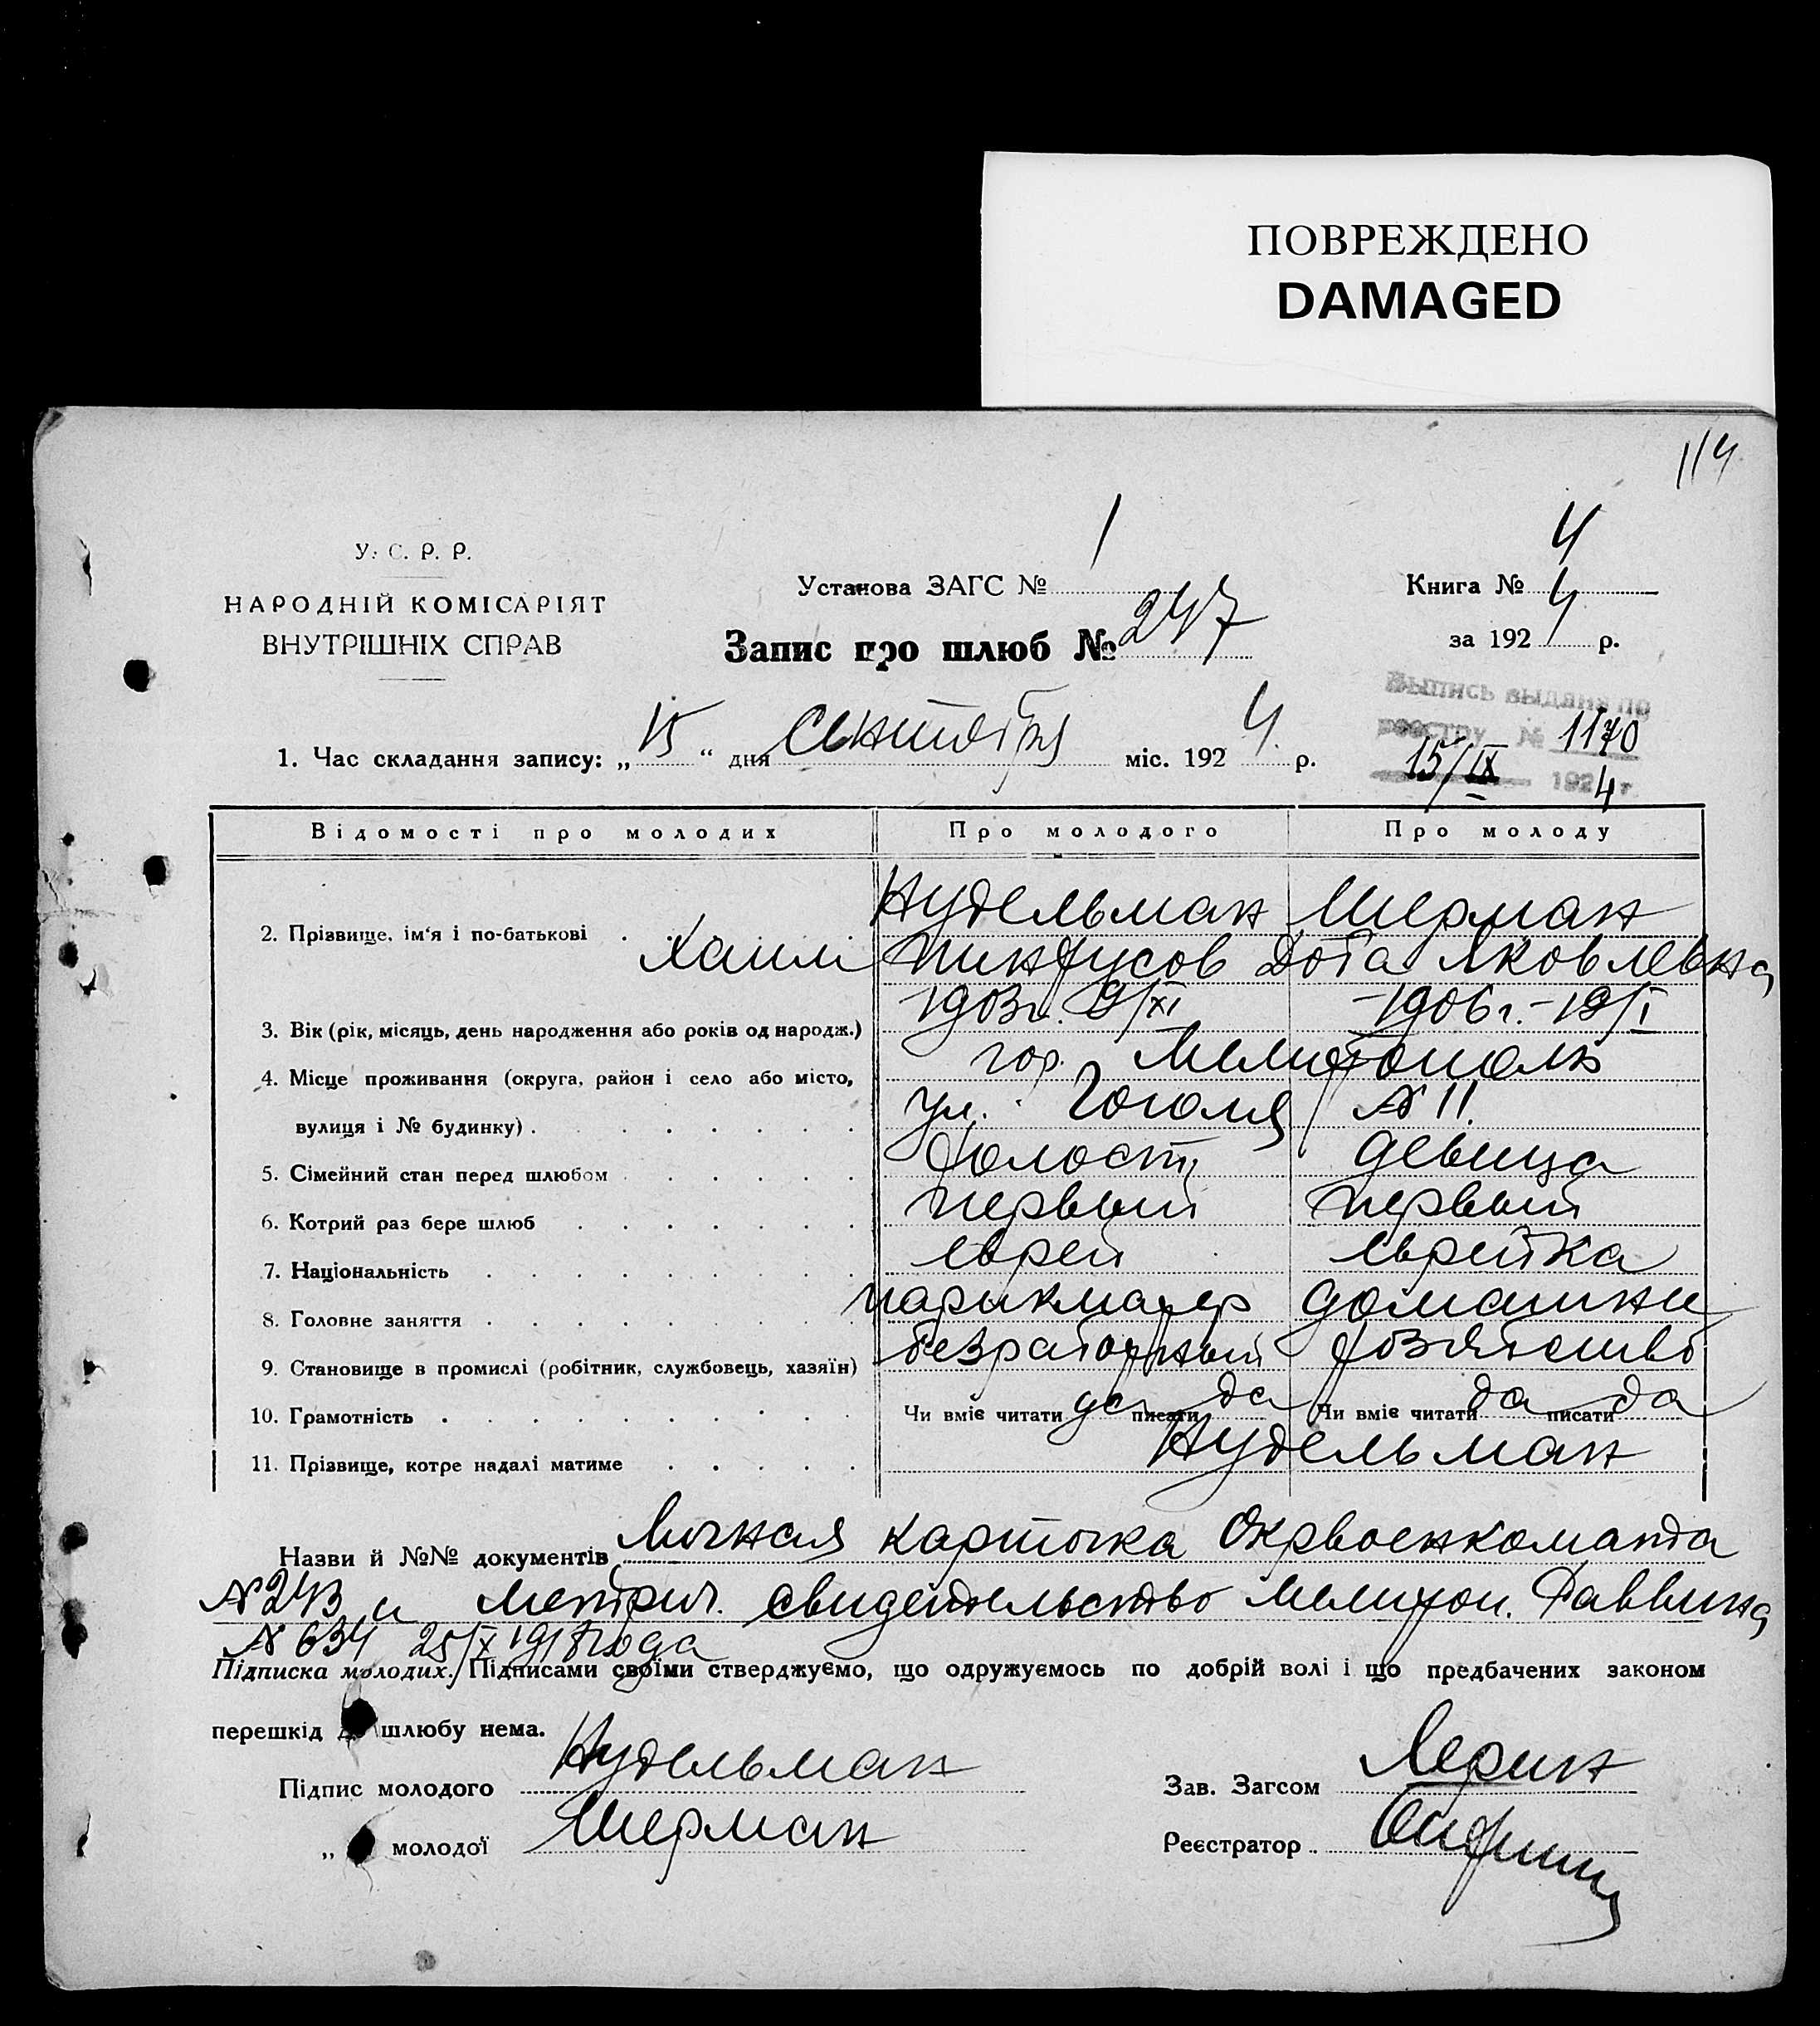 ПОВРЕЖДЕНО
DAMAGED
114
У. С. Р. Р.
НАРОДНІЙ КОМІСАРІЯТ
ВНУТРІШНІХ СПРАВ
Установа ЗАГС № 1
Запис про шлюб № 247
Книга № 4
за 1924 р.
Выпись выдана по
реестру № 1170
15/IX 1924 г.
1. Час складання запису: „15“ дня Сентября міс. 1924 р.
Відомості про молодих Про молодого Про молоду
2. Прізвище, ім'я і по-батькові Нудельман Шерман
Хаим Пинхусов Доба Яковлевна
3. Вік (рік, місяць, день народження або років од народж.) 1903г. 9/XI 1906 г. - 19/I
4. Місце проживання (округа, район і село або місто, гор. Мелитополь
вулиця і № будинку) ул. Гоголя № 11.
5. Сімейний стан перед шлюбом холост девица
6. Котрий раз бере шлюб первый первый
7. Національність еврей еврейка
8. Головне заняття парикмахер домашнее
9. Становище в промислі (робітник, службовець, хазяїн) безработный хозяйство
10. Грамотність Чи вміє читати да писати да Чи вміє читати да писати да
11. Прізвище, котре надалі матиме Нудельман
Назви й №№ документів Личная карточка Окрвоенкомата
№ 243 и метрич. свидетельство Мелитоп. Раввина
№ 634 25/X 1918 года
Підписка молодих. Підписами своїми стверджуємо, що одружуємось по добрій волі і що предбачених законом
перешкід до шлюбу нема.
Підпис молодого Нудельман
Зав. Загсом
„ молодої Шерман
Реєстратор